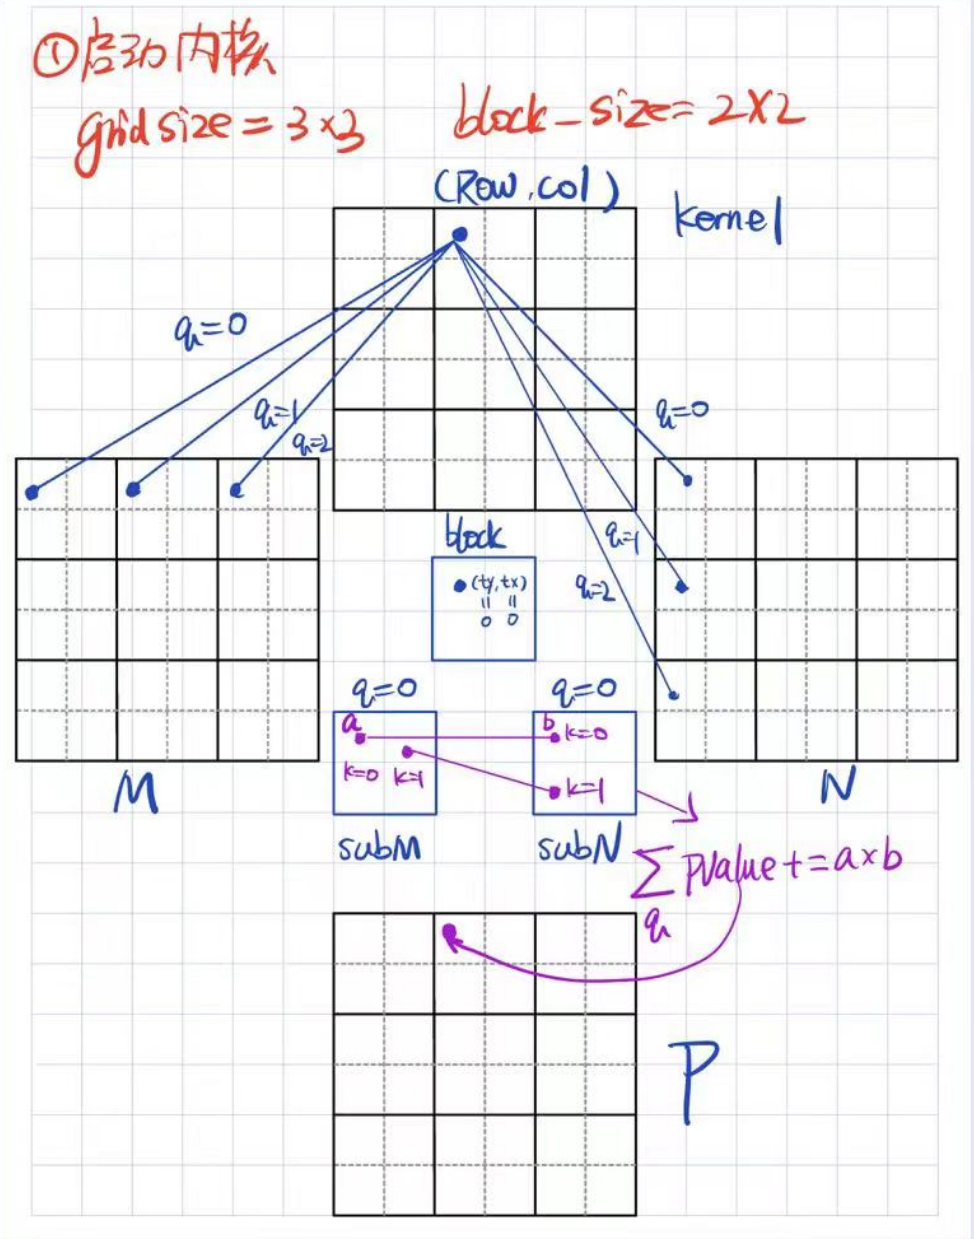 ①启动内核
gridsize = 3×3 block_size = 2×2
(Row,col)
kernel
q=0
q=1
q=2
q=0
q=1
q=2
block
(ty,tx)
|| ||
0 0
q=0 q=0
a b k=0
k=0 k=1 k=1
M N
subM subN
∑ pValue+=a×b
q
P